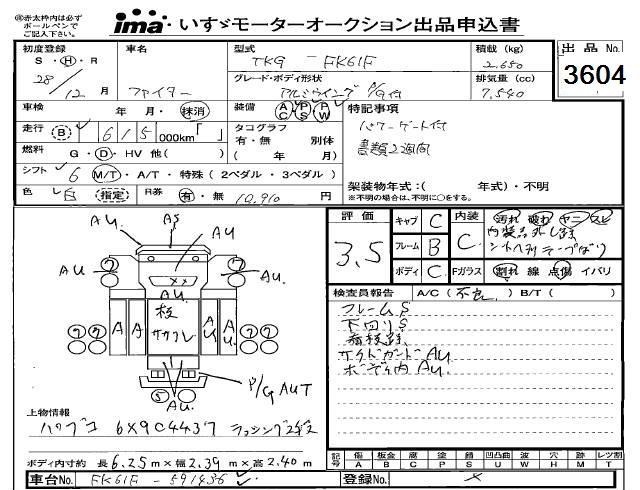 ㊟赤太枠内は必ず
ボールペンで
ご記入下さい。
ima いすゞモーターオークション出品申込書
初度登録 車名 型式 積載(kg) 出品No.
S・H・R TKG-FK61F 2,650
28年12月 ファイター グレード・ボディ形状 排気量(cc) 3604
アルミウイング P/G付 7,540
車検 年・月・抹消 装備 AC PS PW 特記事項
走行 B 615,000km「」 タコグラフ パワーゲート付
有・無 別体 書類2週間
燃料 G・D・HV 他( ) ( 年 月)
シフト 6 M/T・A/T・特殊(2ペダル・3ペダル) 架装物年式:( 年式)・不明
色 白 指定 R券 有・無 10,910円 ※不明の場合は、不明に○をする。
評価 キャブ C 内装 汚れ 破れ ヤニ スレ
3.5 フレーム B C
ボディ C Fガラス 割れ 線 点傷 イバリ
検査員報告 A/C(不良)B/T( )
フレームS
下回りS
サイドガードAU
ボディ内AU
AU AS AU
AU AU
AU
A A AU AU
P/G AUT
AU
上物情報
パブコ 6X9C4437 ラッシング2段
ボディ内寸約 長6.25m×幅2.39m×高2.40m
記号 傷 板金 腐 塗 錆 凹凸曲 波 穴 雨木 レツ割
A B C P S U W H M T
車台No. FK61F-591436 登録No.